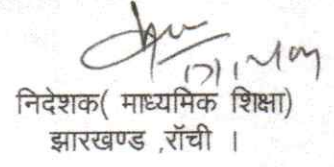 निदेशक( माध्यमिक शिक्षा)
झारखण्ड ,रॉची ।